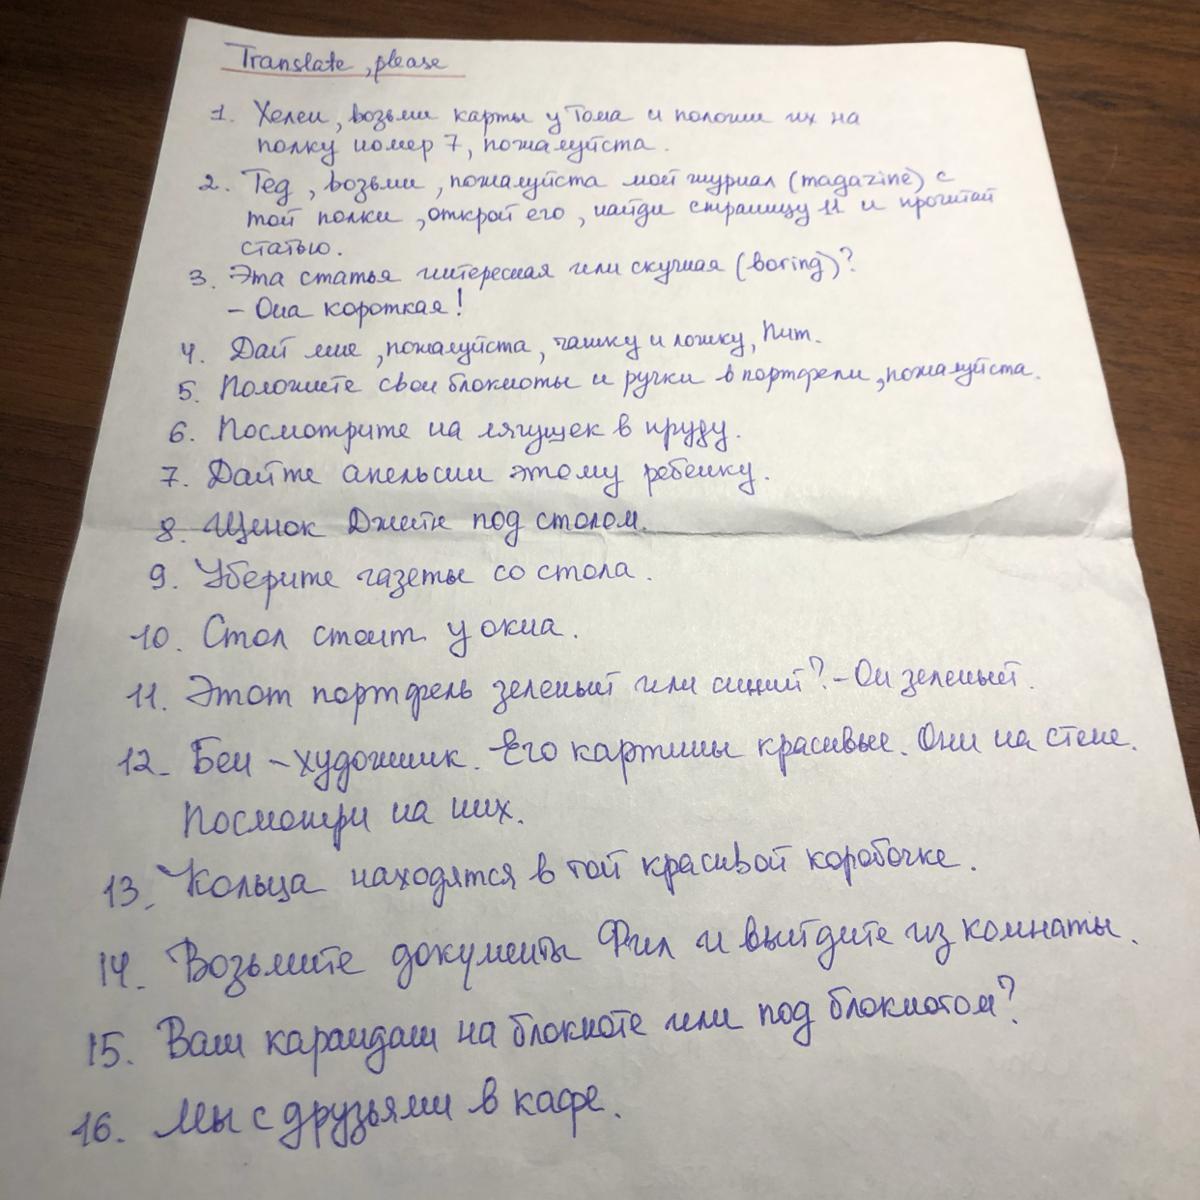 Translate, please
1. Хелен, возьми карты у Тома и положи их на
полку номер 7, пожалуйста.
2. Тед, возьми, пожалуйста мой журнал (magazine) с
той полки, открой его, найди страницу 11 и прочитай
статью.
3. Эта статья интересная или скучная (boring)?
- Она короткая!
4. Дай мне, пожалуйста, чашку и ложку, Пит.
5. Положите свои блокноты и ручки в портфели, пожалуйста.
6. Посмотрите на лягушек в пруду.
7. Дайте апельсин этому ребенку.
8. Щенок Джейн под столом.
9. Уберите газеты со стола.
10. Стол стоит у окна.
11. Этот портфель зеленый или синий? - Он зеленый.
12. Бен - художник. Его картины красивые. Они на стене.
Посмотри на них.
13. Кольца находятся в той красивой коробочке.
14. Возьмите документы Фил и выйдите из комнаты.
15. Ваш карандаш на блокноте или под блокнотом?
16. Мы с друзьями в кафе.